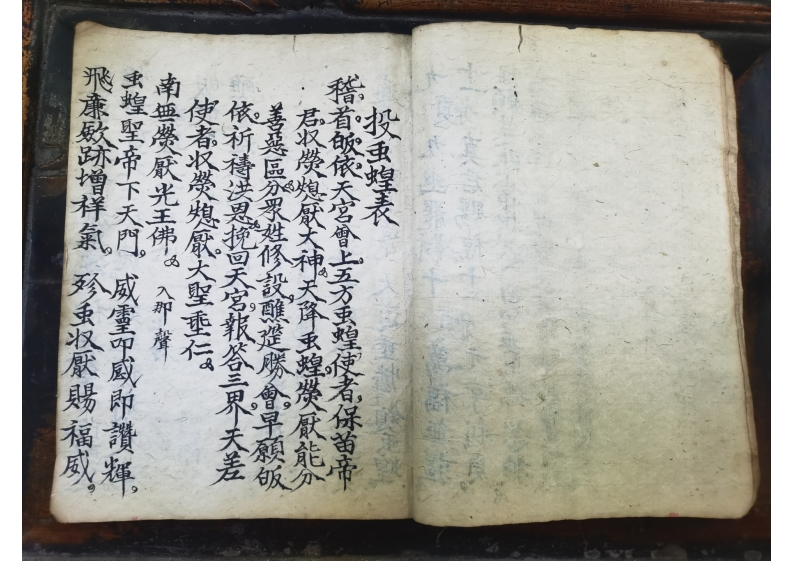 投虫蝗表
稽首皈依天宮會上五方虫蝗使者保苗帝
君収熒熄厭大神天降虫蝗熒厭能分
善惡區分眾姓修設醮筵勝會早願皈
依祈禱洪恩挽回天宮報答三界天差
使者収熒熄厭大聖垂仁
南無熒厭光王佛 入那聲
虫蝗聖帝下天門。 威靈叩威即讚輝。
飛廉歛跡增祥氣。 殄虫収厭賜福威。